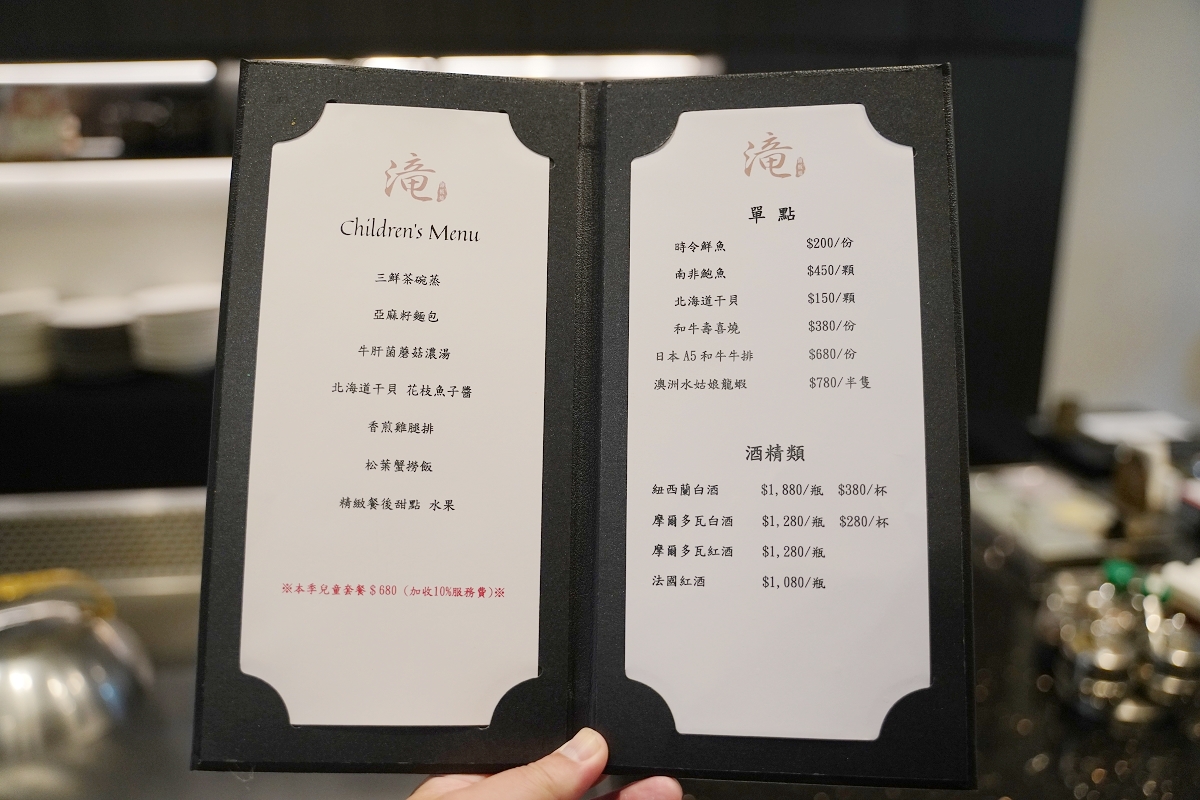 滝
Children's Menu
三鮮茶碗蒸
亞麻籽麵包
牛肝菌蘑菇濃湯
北海道干貝 花枝魚子醬
香煎雞腿排
松葉蟹撈飯
精緻餐後甜點 水果
※本季兒童套餐$680（加收10%服務費）※
滝
單 點
時令鮮魚 $200/份
南非鮑魚 $450/顆
北海道干貝 $150/顆
和牛壽喜燒 $380/份
日本 A5 和牛牛排 $680/份
澳洲水姑娘龍蝦 $780/半隻
酒精類
紐西蘭白酒 $1,880/瓶 $380/杯
摩爾多瓦白酒 $1,280/瓶 $280/杯
摩爾多瓦紅酒 $1,280/瓶
法國紅酒 $1,080/瓶